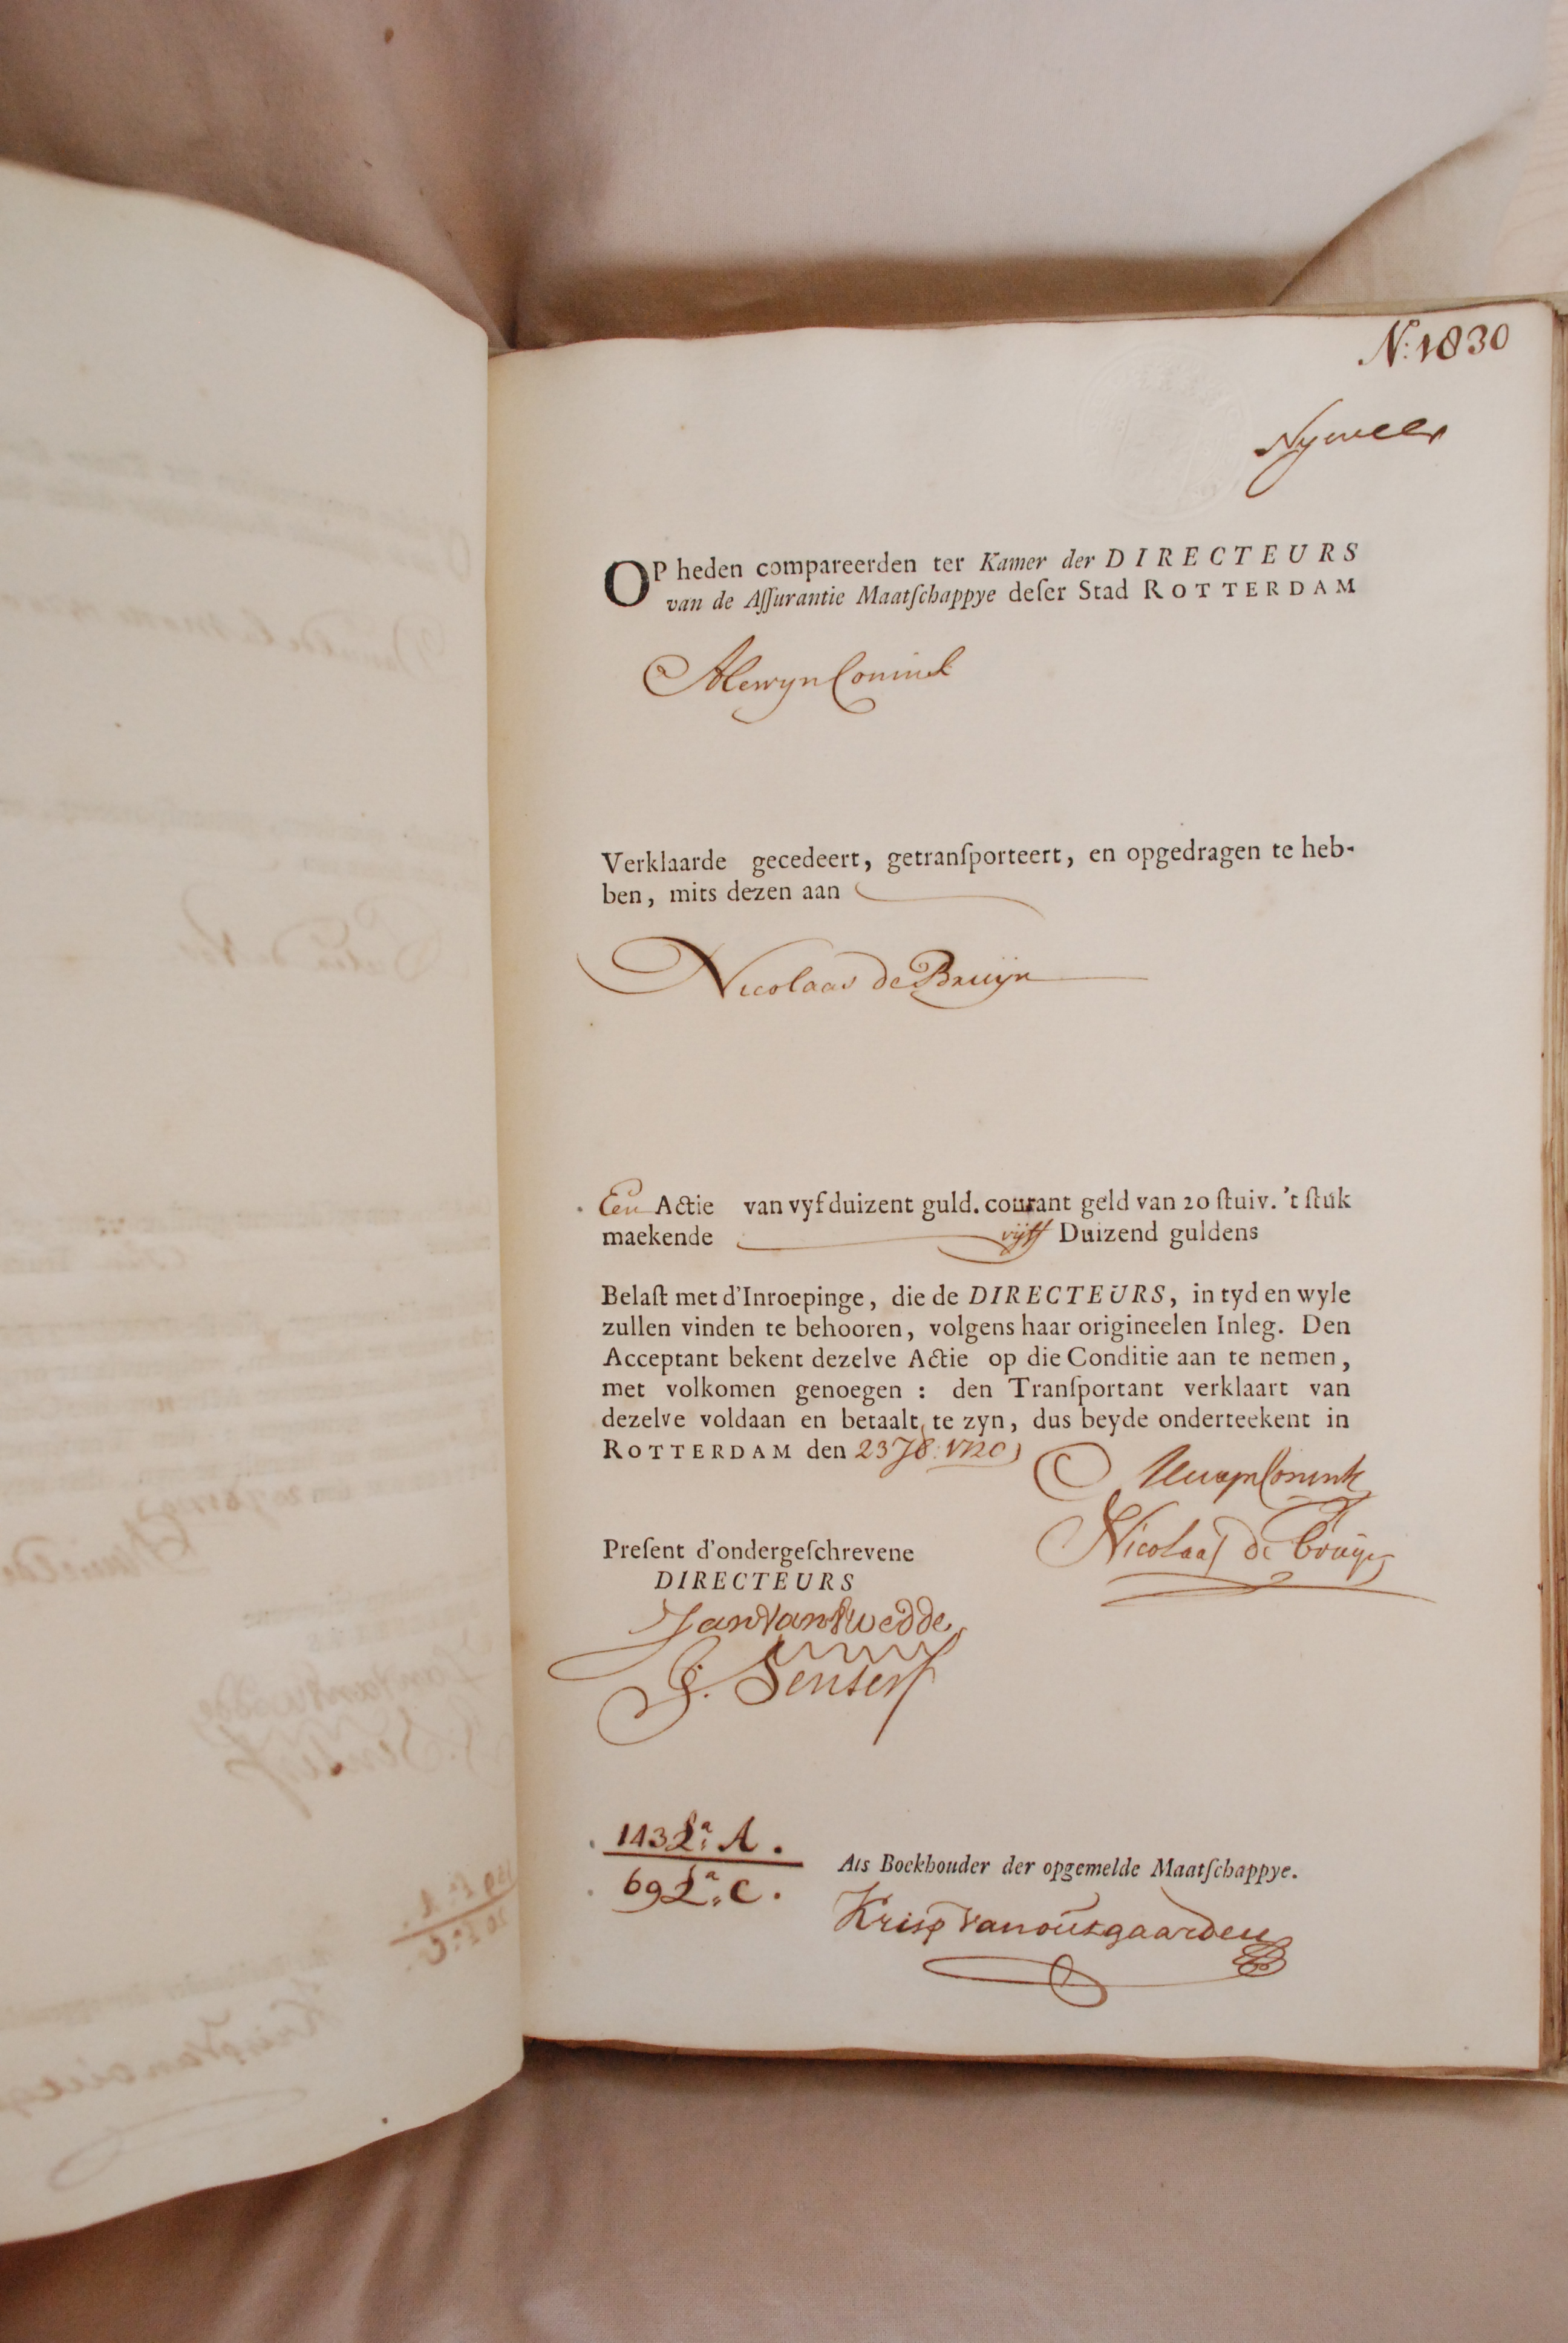 N: 1830
OP heden compareerden ter Kamer der DIRECTEURS
van de Aſſurantie Maatſchappye deſer Stad ROTTERDAM
Alewyn Conink
Verklaarde gecedeert, getranſporteert, en opgedragen te heb-
ben, mits dezen aan
Nicolaas de Bruijn
Een Actie van vyf duizent guld. courant geld van 20 ſtuiv. 't ſtuk
maekende vijff Duizend guldens
Belaſt met d'Inroepinge, die de DIRECTEURS, in tyd en wyle
zullen vinden te behooren, volgens haar origineelen Inleg. Den
Acceptant bekent dezelve Actie op die Conditie aan te nemen,
met volkomen genoegen : den Tranſportant verklaart van
dezelve voldaan en betaalt te zyn, dus beyde onderteekent in
ROTTERDAM den 23 7b 1720
Alewyn Conink
Nicolaas de Bruijn
Preſent d'ondergeſchrevene
DIRECTEURS
Jan van Twedde
G. Senserf
143 La: A.
69 La: C.
Als Boekhouder der opgemelde Maatſchappye.
Krisp van outgaarden